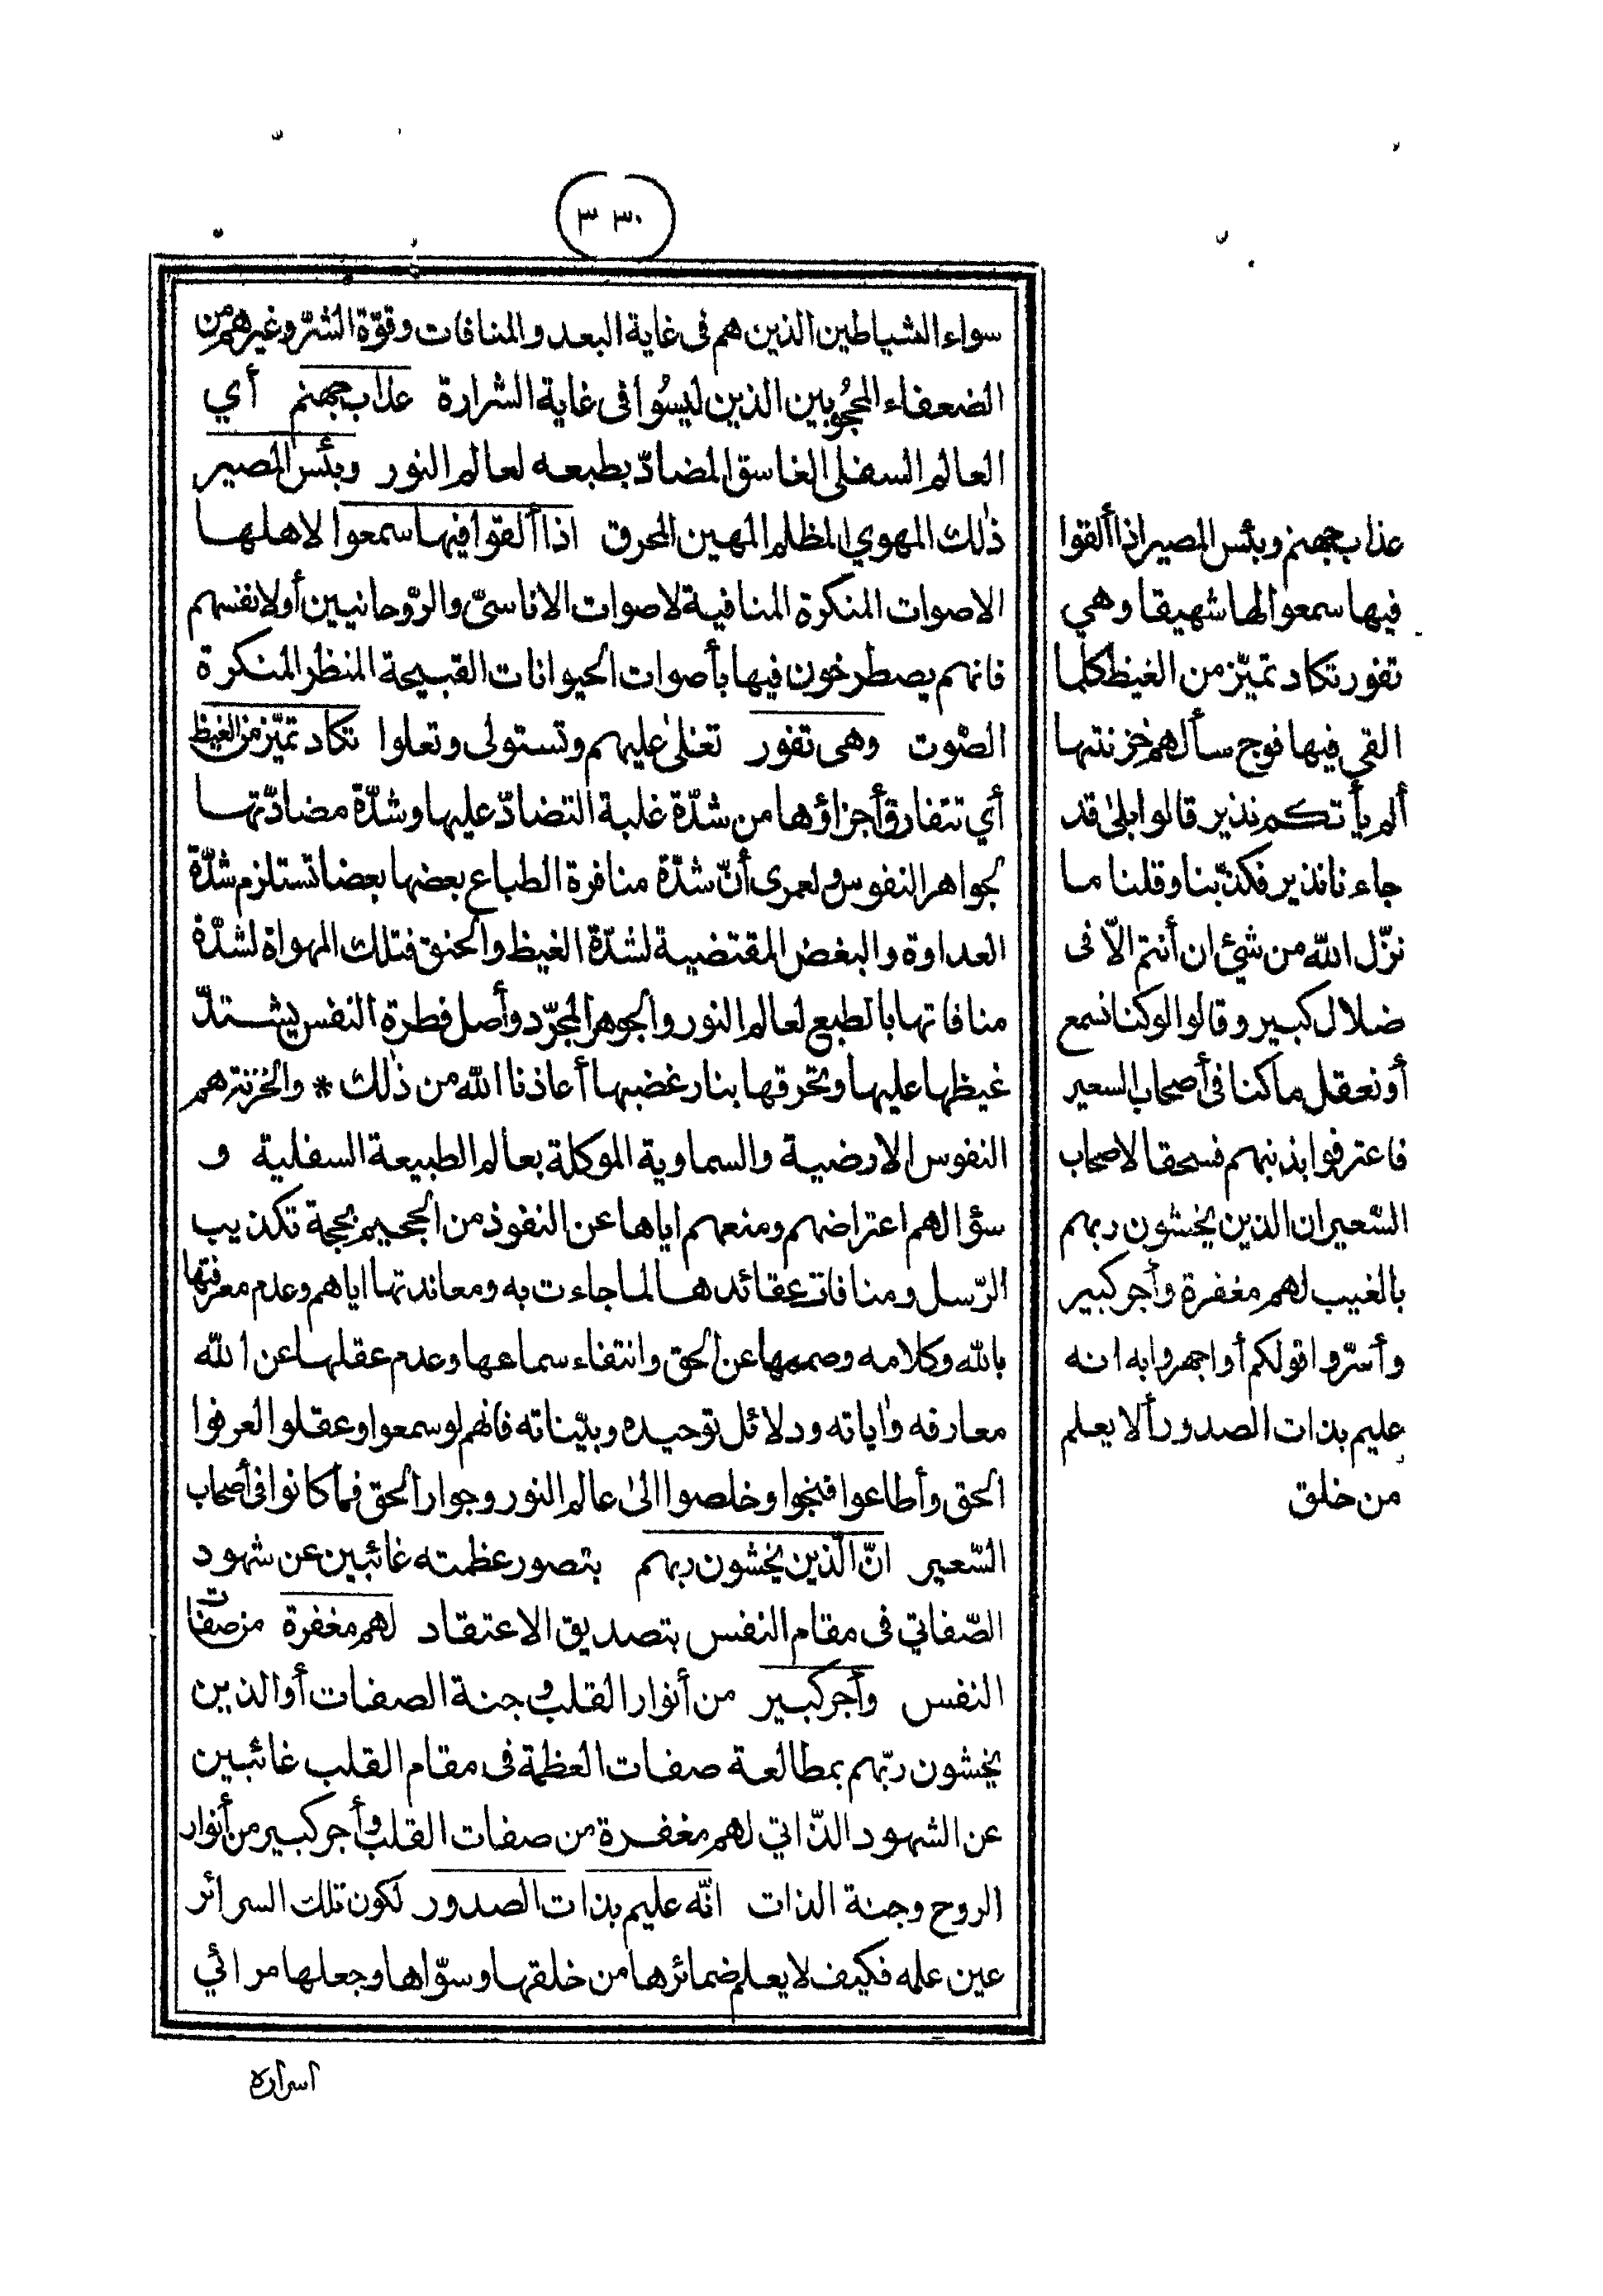 ٣٣٠
سواء الشياطين الذين هم فى غاية البعد والمنافات وقوّة الشرّ وغيرهم من
الضعفاء المحجُوبين الذين ليسُوا فى غاية الشرارة عذاب جهنم أي
العالم السفلى الغاسق المضادّ بطبعه لعالم النور وبئس المصير
ذٰلك المهوي المظلم المهين المحرق اذا ألقوا فيها سمعوا لاهلها
الاصوات المنكرة المنافية لاصوات الاناسىّ والرّوحانيين أولانفسهم
فانهم يصطرخون فيها بأصوات الحيوانات القبيحة المنظر المنكرة
الصّوت وهى تفور تغلى عليهم وتستولى وتعلوا تكاد تميّز من الغيظ
أي تتفارق أجزاؤها من شدّة غلبة التضادّ عليها وشدّة مضادّتها
لجواهر النفوس ولعمرى أنّ شدّة منافرة الطباع بعضها بعضا تستلزم شدّة
العداوة والبغض المقتضية لشدّة الغيظ والحنق فتلك المهواة لشدّة
منافاتها بالطبع لعالم النور والجوهر المجرّد وأصل فطرة النفس يشتدّ
غيظها عليها وتحرقها بنار غضبها أعاذنا الله من ذٰلك * والخزنة هم
النفوس الارضية والسماوية الموكلة بعالم الطبيعة السفلية و
سؤالهم اعتراضهم ومنعهم اياها عن النفوذ من الجحيم بحجة تكذيب
الرّسل ومنافات عقائدها لما جاءت به ومعاندتها اياهم وعدم معرفتها
بالله وكلامه وصممها عن الحق وانتفاء سماعها وعدم عقلها عن الله
معارفه وٰاياته ودلائل توحيده وبيّناته فانهم لوسمعوا وعقلوا لعرفوا
الحق وأطاعوا فنجوا وخلصوا الىٰ عالم النور وجوار الحق فما كانوا فى أصحاب
السّعير انّ الّذين يخشون ربهم بتصور عظمته غائبين عن شهود
الصّفاتي فى مقام النفس بتصديق الاعتقاد لهم مغفرة من صفات
النفس وأجر كبير من أنوار القلب وجنة الصفات أوالذين
يخشون ربّهم بمطالعة صفات العظمة فى مقام القلب غائبين
عن الشهود الذّاتي لهم مغفرة من صفات القلب وأجر كبير من أنوار
الروح وجنة الذات انّه عليم بذات الصدور لكون تلك السرائر
عين علمه فكيف لا يعلم ضمائرها من خلقها وسوّاها وجعلها مرائي
اسراره
عذاب جهنم وبئس المصير اذا ألقوا
فيها سمعوا لها شهيقا وهي
تفور تكاد تميّز من الغيظ كلما
القي فيها فوج سألهم خزنتها
ألم يأتكم نذير قالوا بلىٰ قد
جاءنا نذير فكذّبنا وقلنا ما
نزّل الله من شئ ان أنتم الاّ فى
ضلال كبير وقالوا لوكنا نسمع
أونعقل ما كنا فى أصحاب السعير
فاعترفوا بذنبهم فسحقا لاصحاب
السّعير ان الذين يخشون ربهم
بالغيب لهم مغفرة وأجر كبير
وأسرّوا قولكم أواجهروا به انه
عليم بذات الصدور ألا يعلم
من خلق